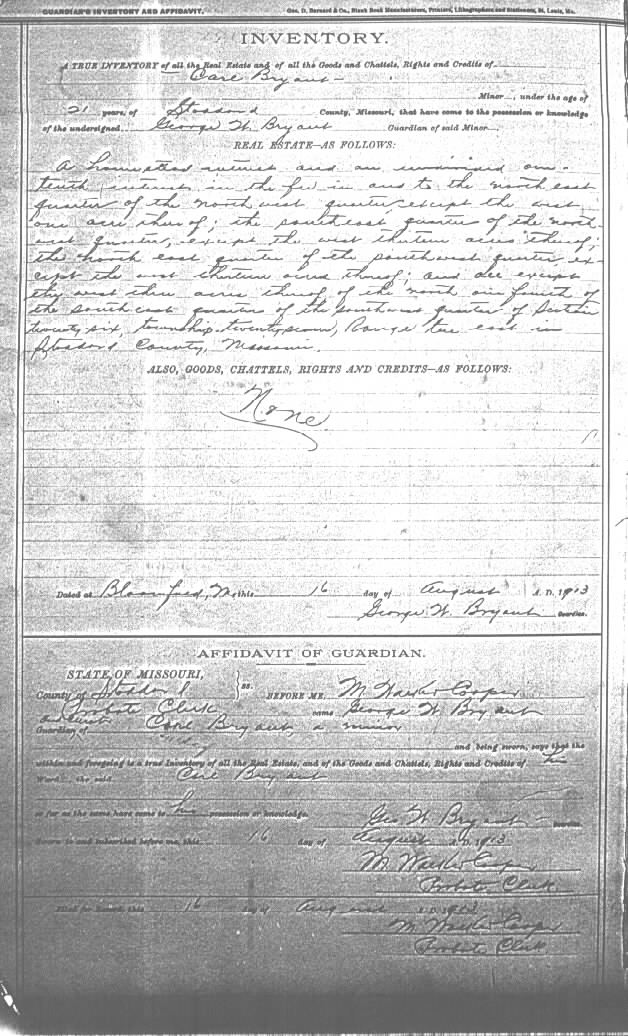 GUARDIAN'S INVENTORY AND AFFIDAVIT. Geo. D. Barnard & Co., Blank Book Manufacturers, Printers, Lithographers and Stationers, St. Louis, Mo.
INVENTORY.
A TRUE INVENTORY of all the Real Estate and of all the Goods and Chattels, Rights and Credits of
Carl Bryant
Minor , under the age of
21 years, of Stoddard County, Missouri, that have come to the possession or knowledge
of the undersigned George W. Bryant Guardian of said Minor ,
REAL ESTATE—AS FOLLOWS:
A homestead interest and an undivided one-
tenth interest in the fee in and to the north east
quarter of the north west quarter except the west
one acre thereof; the southeast quarter of the north
west quarter, except the west thirteen acres thereof;
the north east quarter of the southwest quarter, ex-
cept the west thirteen acres thereof; and all except
the west three acres thereof of the north one fourth of
the south east quarter of the southwest quarter of Section
twenty six, township twenty seven, Range ten east in
Stoddard County, Missouri.
ALSO, GOODS, CHATTELS, RIGHTS AND CREDITS—AS FOLLOWS:
None
Dated at Bloomfield, Mo this 16 day of August A. D. 1913
George W. Bryant Guardian.
AFFIDAVIT OF GUARDIAN.
STATE OF MISSOURI,
County of Stoddard } ss. BEFORE ME, M. Walker Cooper
Probate Clerk came George W. Bryant
Guardian of Carl Bryant, a minor
and being sworn, says that the
within and foregoing is a true Inventory of all the Real Estate, and of the Goods and Chattels, Rights and Credits of his
Ward , the said Carl Bryant
so far as the same have come to his possession or knowledge.
Geo W. Bryant Guardian
Sworn to and subscribed before me, this 16 day of August A. D. 1913
M. Walker Cooper
Probate Clerk
Filed for Record, this 16 day of August A. D. 1913
M. Walker Cooper
Probate Clerk